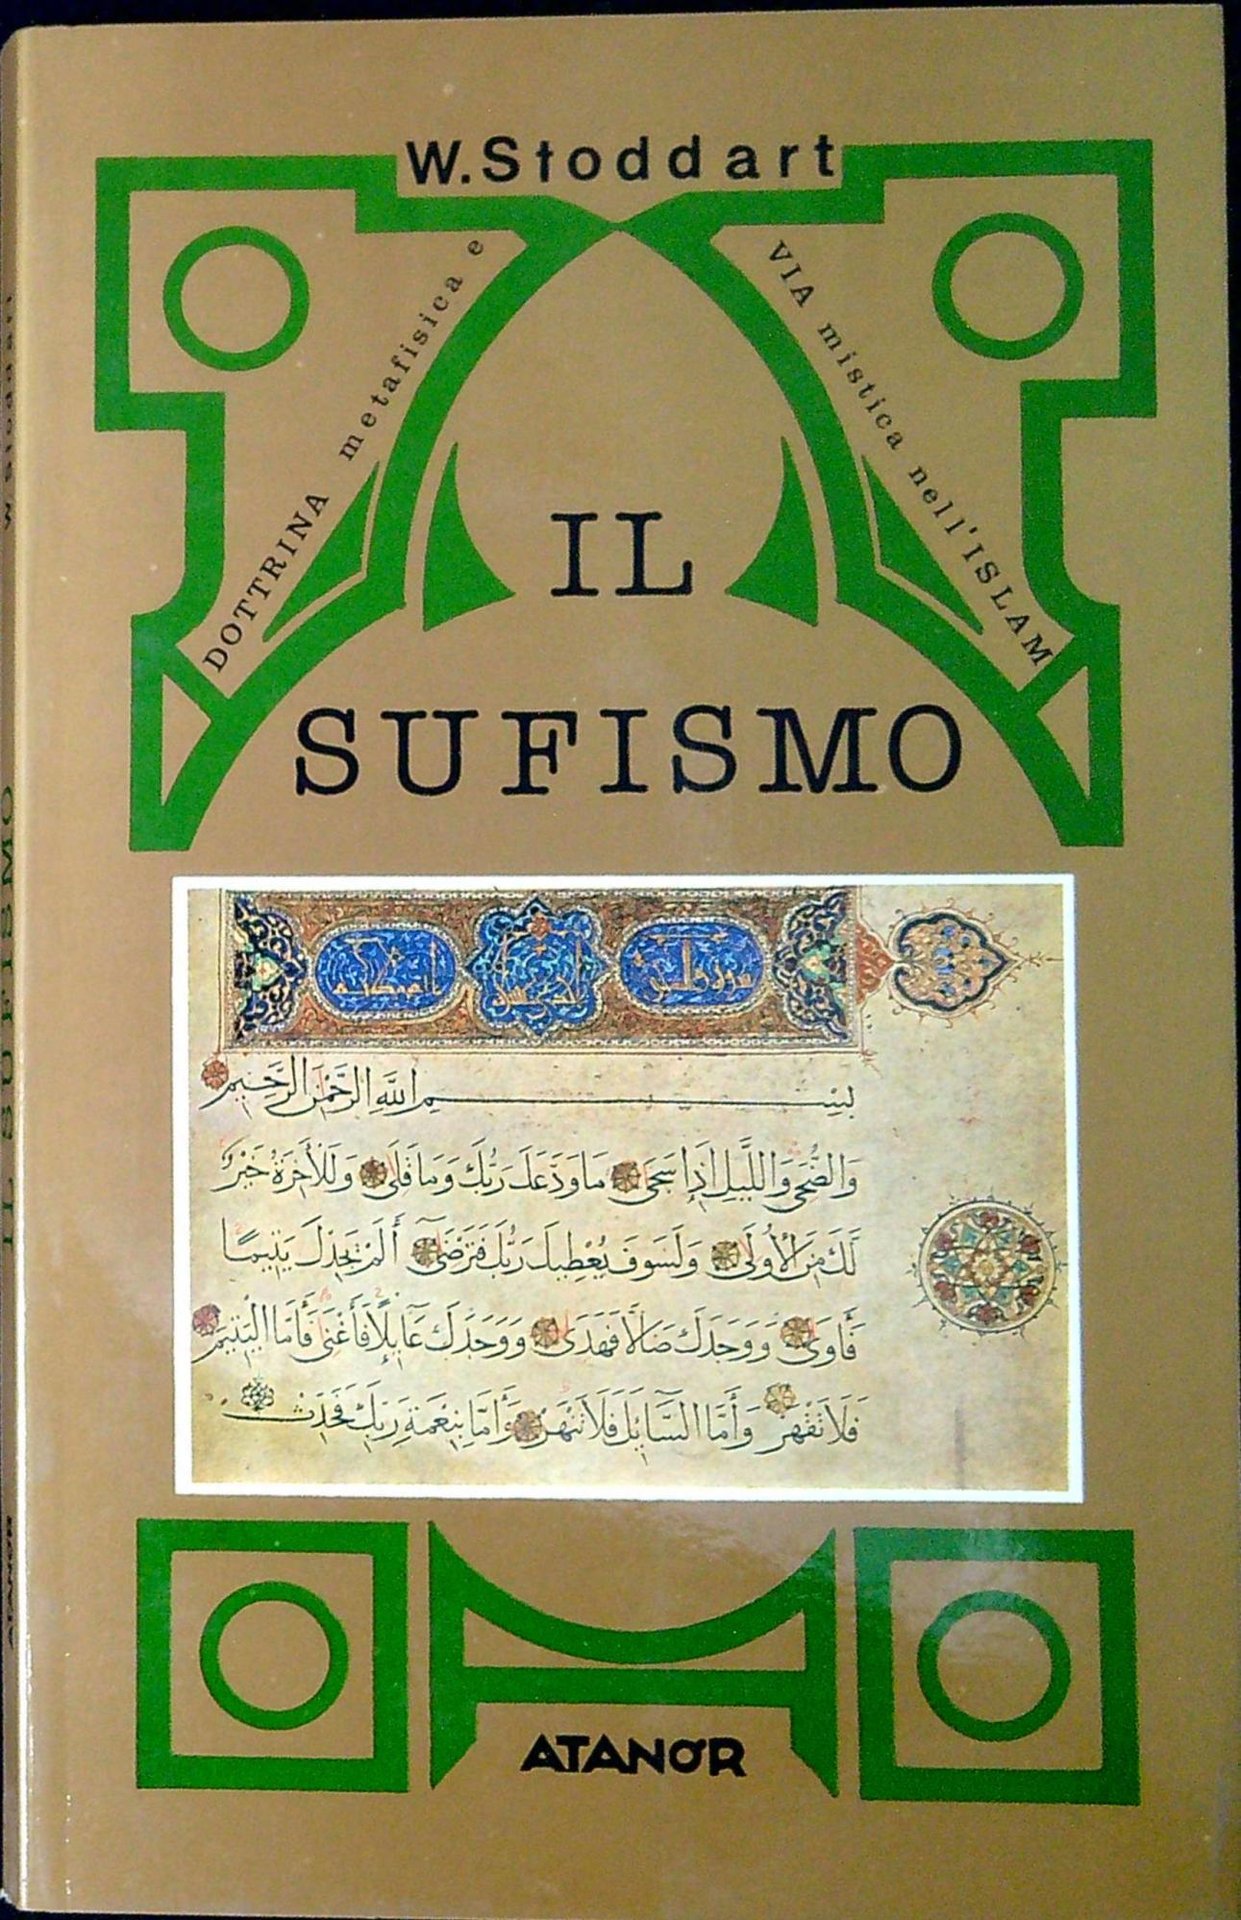 W. Stoddart
DOTTRINA metafisica e
VIA mistica nell'ISLAM
IL
SUFISMO
بِسْمِ اللَّهِ الرَّحْمَنِ الرَّحِيمِ
وَالضُّحَى وَاللَّيْلِ إِذَا سَجَى مَا وَدَّعَكَ رَبُّكَ وَمَا قَلَى وَلَلْأَخِرَةُ خَيْرٌ
لَكَ مِنَ الْأُولَى وَلَسَوْفَ يُعْطِيكَ رَبُّكَ فَتَرْضَى أَلَمْ يَجِدْكَ يَتِيمًا
فَأَوَى وَوَجَدَكَ ضَالًّا فَهَدَى وَوَجَدَكَ عَائِلًا فَأَغْنَى فَأَمَّا الْيَتِيمَ
فَلَا تَقْهَرْ وَأَمَّا السَّائِلَ فَلَا تَنْهَرْ وَأَمَّا بِنِعْمَةِ رَبِّكَ فَحَدِّثْ
ATANÒR
W Stoddart
IL SUFISMO
ATANÒR